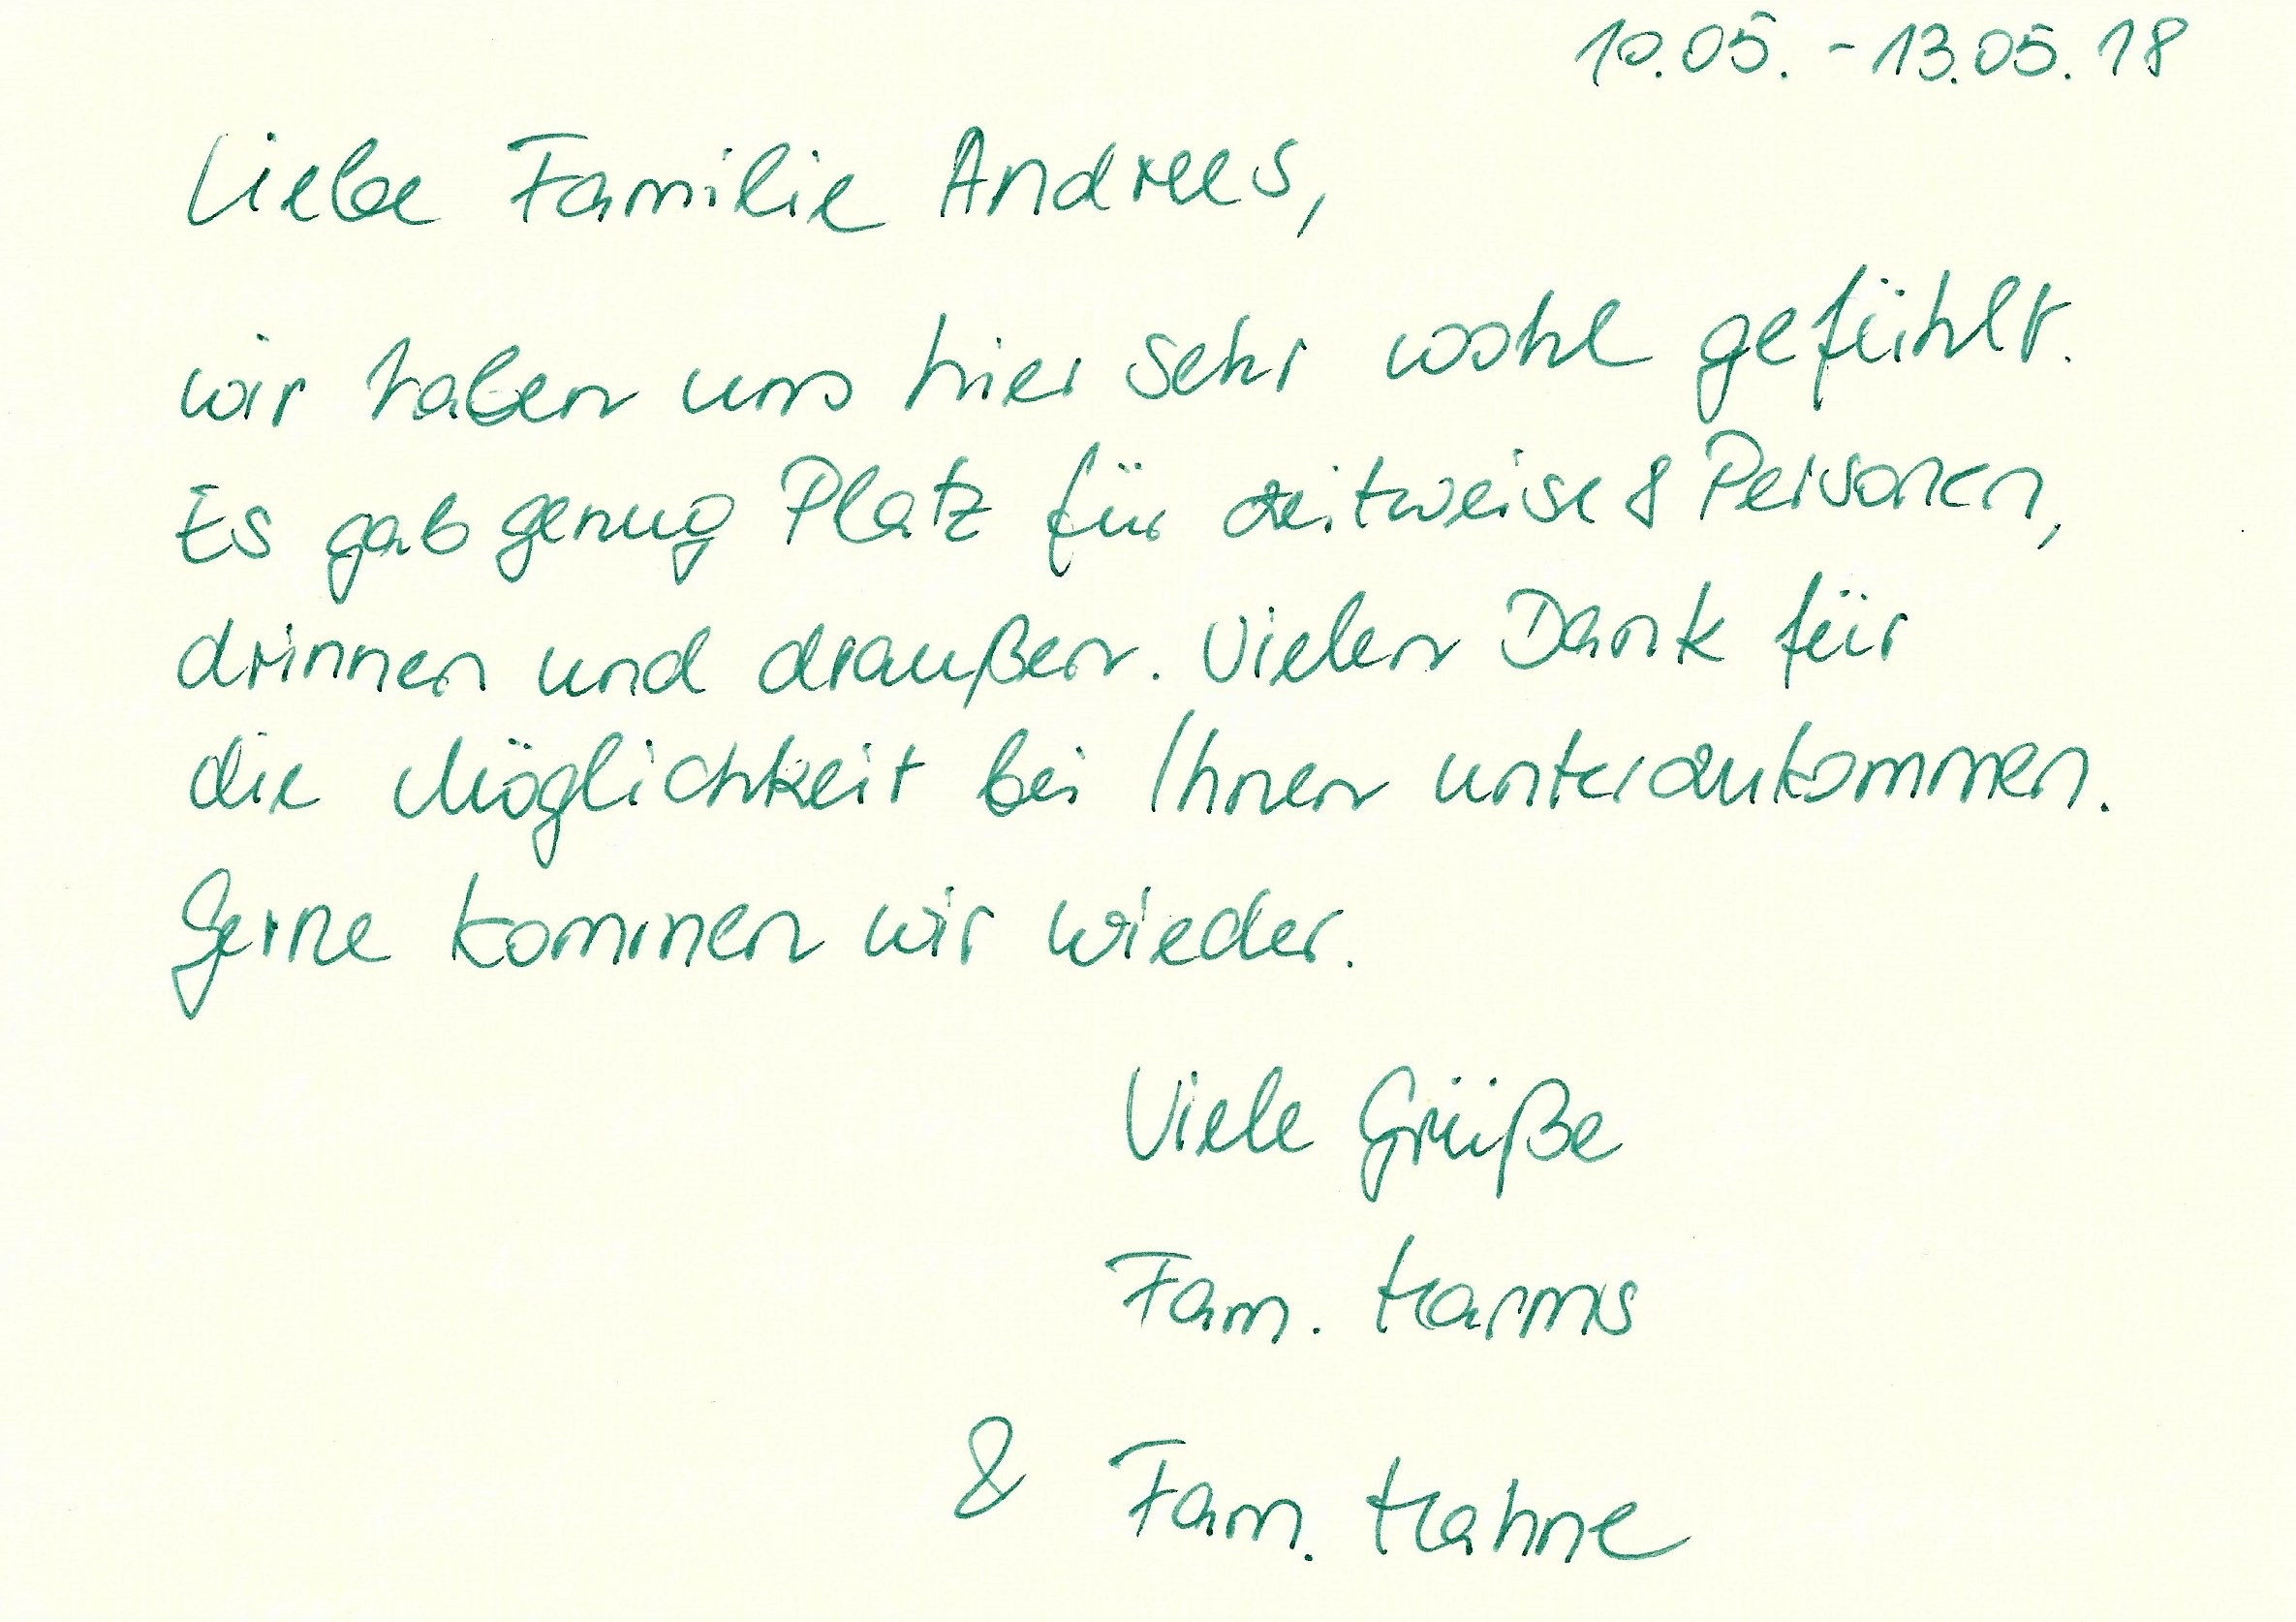 10.05. - 13.05.18
Liebe Familie Andrees,
wir haben uns hier sehr wohl gefühlt.
Es gab genug Platz für zeitweise 8 Personen,
drinnen und draußen. Vielen Dank für
die Möglichkeit bei Ihnen unterzukommen.
Gerne kommen wir wieder.
Viele Grüße
Fam. Harms
& Fam. Hahne